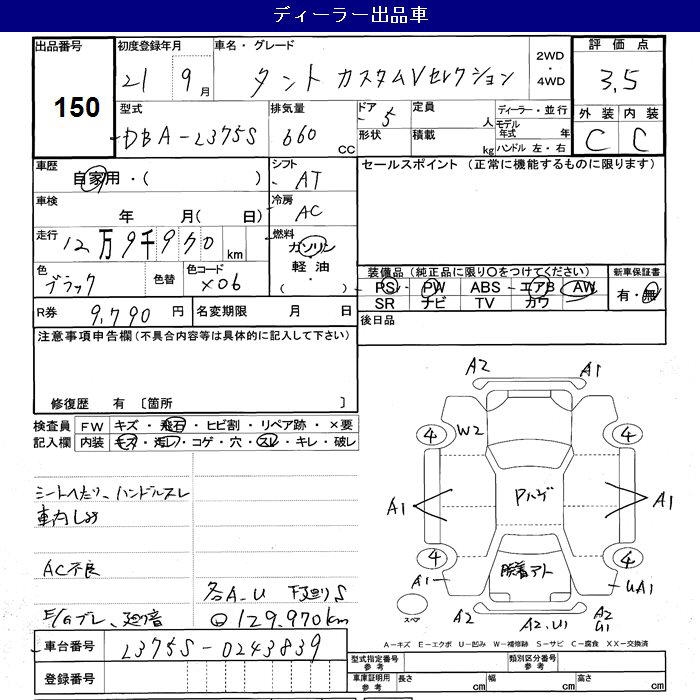 ディーラー出品車
出品番号
150
初度登録年月
21 9月
車名・グレード
タント カスタムVセレクション
2WD
・
4WD
評価点
3.5
外装 内装
C C
型式
DBA-L375S
排気量
660
CC
ドア
5
形状
定員
人
積載
kg
ディーラー・並行
モデル年式 年
ハンドル 左・右
車歴
自家用・( )
シフト
AT
セールスポイント (正常に機能するものに限ります)
車検
年 月( 日)
冷房
AC
走行
12万9千970 km
燃料
ガソリン
軽油・
( )
色
ブラック
色替
色コード
X06
装備品 (純正品に限り〇をつけてください)
PS PW ABS エアB AW
SR ナビ TV カワ
新車保証書
有・無
R券
9,790 円
名変期限 月 日
後日品
注意事項申告欄(不具合内容等は具体的に記入して下さい)
修復歴 有 〔箇所 〕
検査員
記入欄
FW キズ・飛石・ヒビ割・リペア跡・×要
内装 キズ・汚レ・コゲ・穴・スレ・キレ・破レ
シートへたり、ハンドルスレ
AC不良
各A-U 下廻りS
E/Gブレ、廻り音
129,970km
A2 A1
4 W2 4
A1 Pハゲ A1
4 4
A1 脱着アト UA1
スペア
A2 A2,U1 A2
U1
A-キズ E-エクボ U-凹み W-補修跡 S-サビ C-腐食 XX-交換済
車台番号
L375S-0243839
登録番号
型式指定番号
参考
類別区分番号
参考
車庫証明用
参考
長さ cm
幅 cm
高さ cm